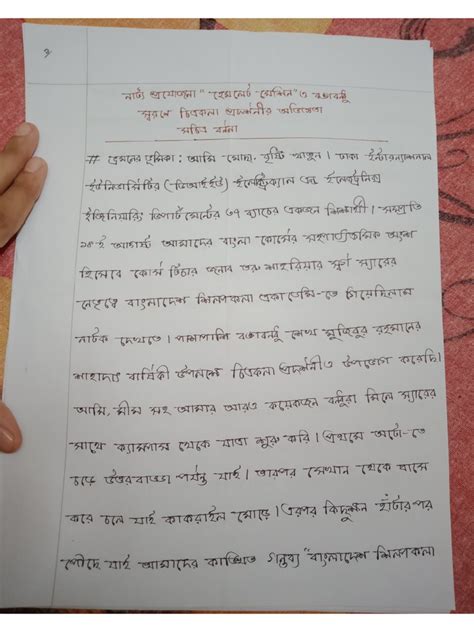 ১
নাট্য প্রযোজনা "হেমলেট মেশিন" ও বঙ্গবন্ধু
স্মরণে চিত্রকলা প্রদর্শনীর অভিজ্ঞতা
সচিত্র বর্ণনা
# ভ্রমণের ভূমিকা : আমি মোছা. বৃষ্টি খাতুন। ঢাকা ইন্টারন্যাশনাল
ইউনিভার্সিটির (ডিআইইউ) ইলেকট্রিক্যাল এন্ড ইলেকট্রনিক্স
ইঞ্জিনিয়ারিং ডিপার্টমেন্টের ৩৭ ব্যাচের একজন শিক্ষার্থী। সম্প্রতি
২৮ ই আগস্ট আমাদের বাংলা কোর্সের সহপাঠ্যক্রমিক অংশ
হিসেবে কোর্স টিচার জনাব শাহরিয়ার স্যারের
নেতৃত্বে বাংলাদেশ শিল্পকলা একাডেমি-তে গিয়েছিলাম
নাটক দেখতে। পাশাপাশি বঙ্গবন্ধু শেখ মুজিবুর রহমানের
শাহাদাৎ বার্ষিকী উপলক্ষে চিত্রকলা প্রদর্শনীও উপভোগ করেছি।
আমি, মীম সহ আমার আরও কয়েকজন বন্ধুরা মিলে স্যারের
সাথে ক্যাম্পাস থেকে যাত্রা শুরু করি। প্রথমে অটো-তে
চড়ে উত্তরবাড্ডা পর্যন্ত যাই। তারপর সেখান থেকে বাসে
করে চলে যাই কাকরাইল মোড়ে। এরপর কিছুক্ষন হাঁটার পর
পৌঁছে যাই আমাদের কাঙ্ক্ষিত গন্তব্য "বাংলাদেশ শিল্পকলা